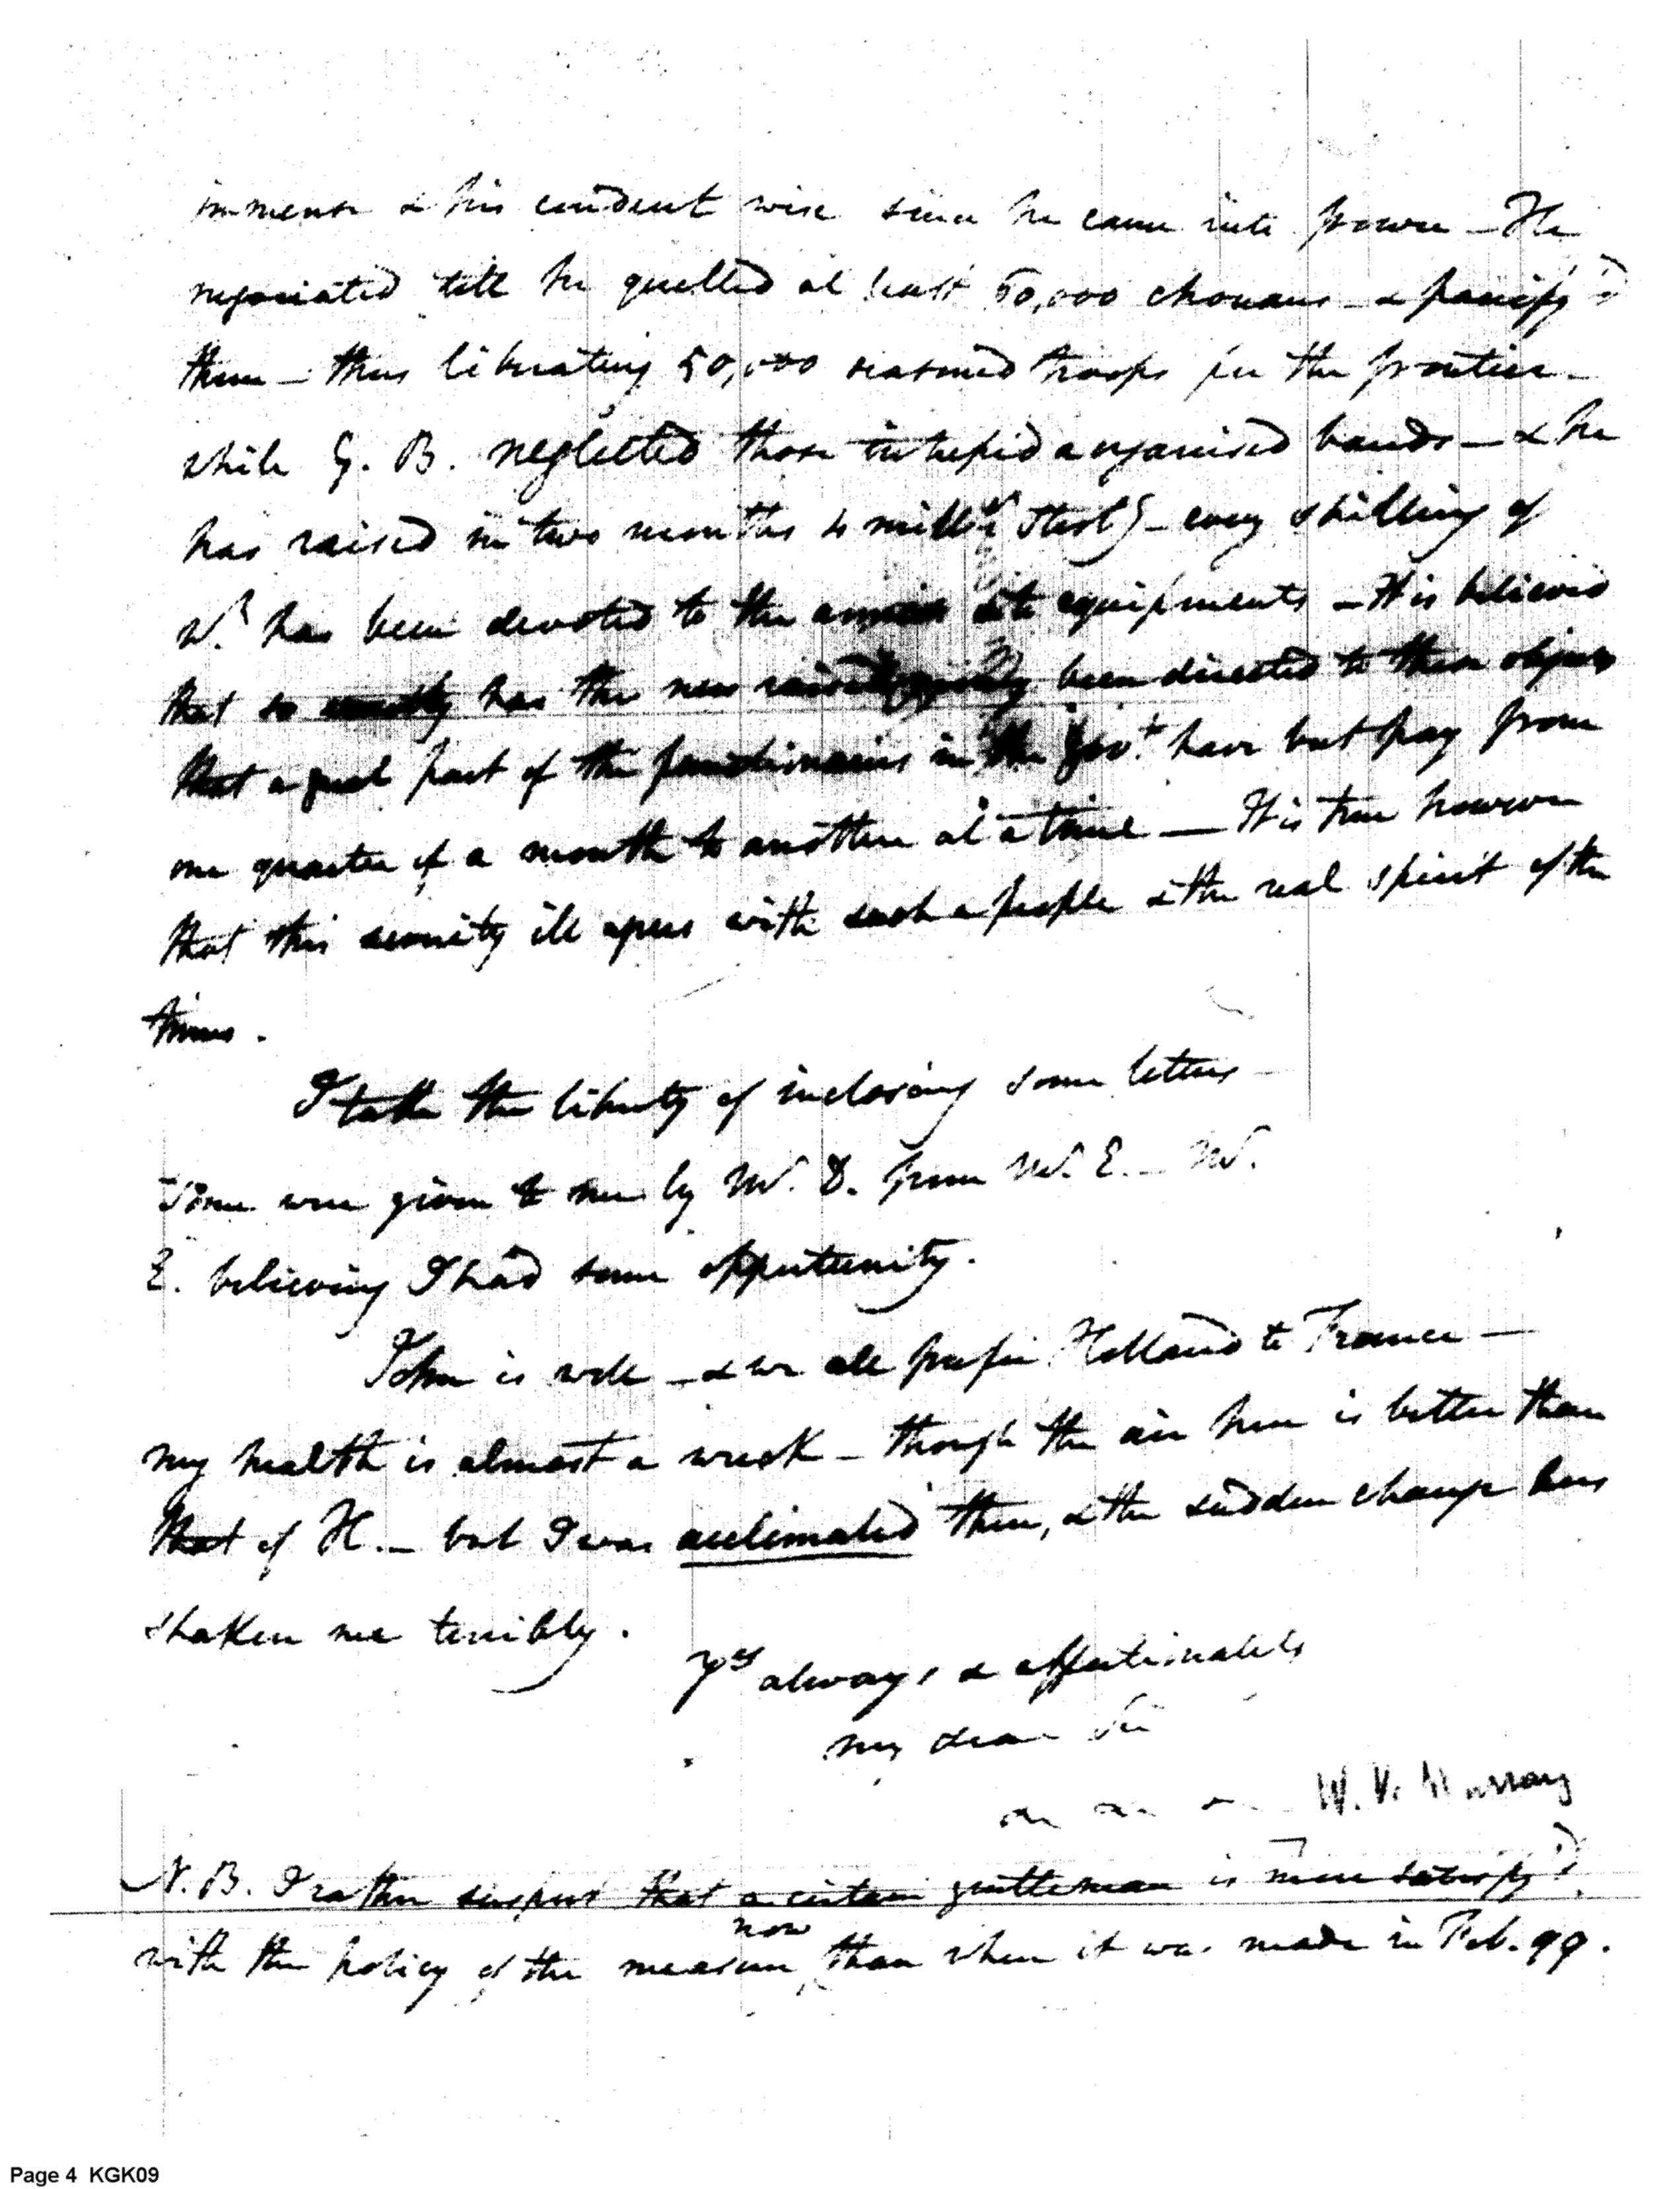 immense & his conduct wise since he came into power — He
negociated till he quelled at least 50,000 chouans — & pacify'd
them — thus liberating 50,000 seasoned troops for the frontier —
while G. B. neglected those intrepid & organised bands — & he
has raised in two months 4 mill<sup>s</sup> Sterl<sup>g</sup> — every shilling of
w<sup>h</sup> has been devoted to the armies & its equipments — It is believed
that so exactly has the new raised been directed to these objects
that a great part of the functionaries in the Gov<sup>t</sup> have but pay from
one quarter of a month to another at a time — It is true however
that this security ill agrees with such a people & the real spirit of the
times.
I take the liberty of inclosing some letters —
Some were given to me by Mr. D. from Mr. E. — Mr.
E. believing I had some oppertunity.
John is well — & we all prefer Holland to France —
my health is almost a wreck — though the air here is better than
that of H. — but I was acclimated there, & the sudden change has
shaken me terribly.
Y<sup>rs</sup> always & affectionately
my dear Sir
W. V. Murray
N. B. I rather suspect that a certain gentleman is more satisfy'd
now
with the policy of the measure, than when it was made in Feb. 99.
Page 4 KGK09